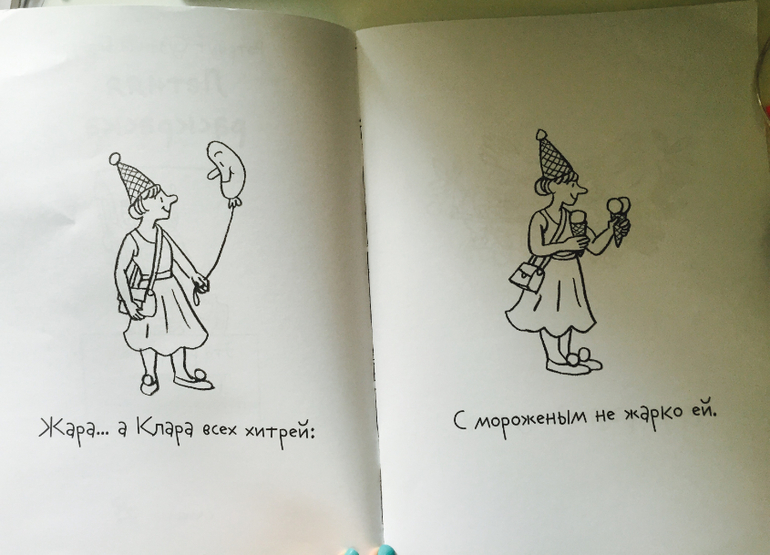 Жара... а Клара всех хитрей:
С мороженым не жарко ей.